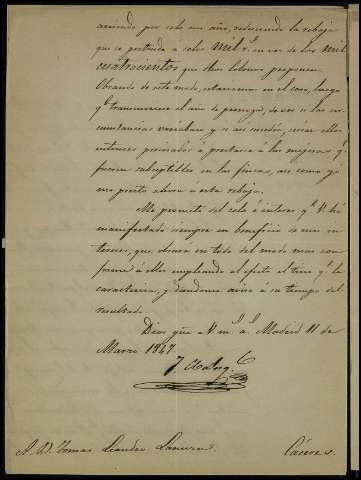 arriendo por solo un año, reduciendo la rebaja
que se pretende a solos mil r.^s en vez de los mil
cuatrocientos que los Colonos proponen.
Obrando de este modo, estaremos en el caso, luego
q.^e transcurriese el año de prorroga, de ver si las cir-
cunstancias variaban y si asi sucedia, serian ellos
entonces precisados á prestarse á las mejoras q.^e
fueran suceptibles en la finca, asi como yo
me presto ahora á esta rebaja.
Me prometo del celo é interes q.^e V. ha
manifestado siempre en beneficio de mis in-
tereses, que obrará en todo del modo mas con-
forme á ellos empleando al efecto el tino q.^e le
caracteriza, y dandome aviso á su tiempo del
resultado.
Dios güe á V. m.^s a.^s Madrid 11 de
Marzo 1847.
S. D. Tomas Leandro
Cáceres.